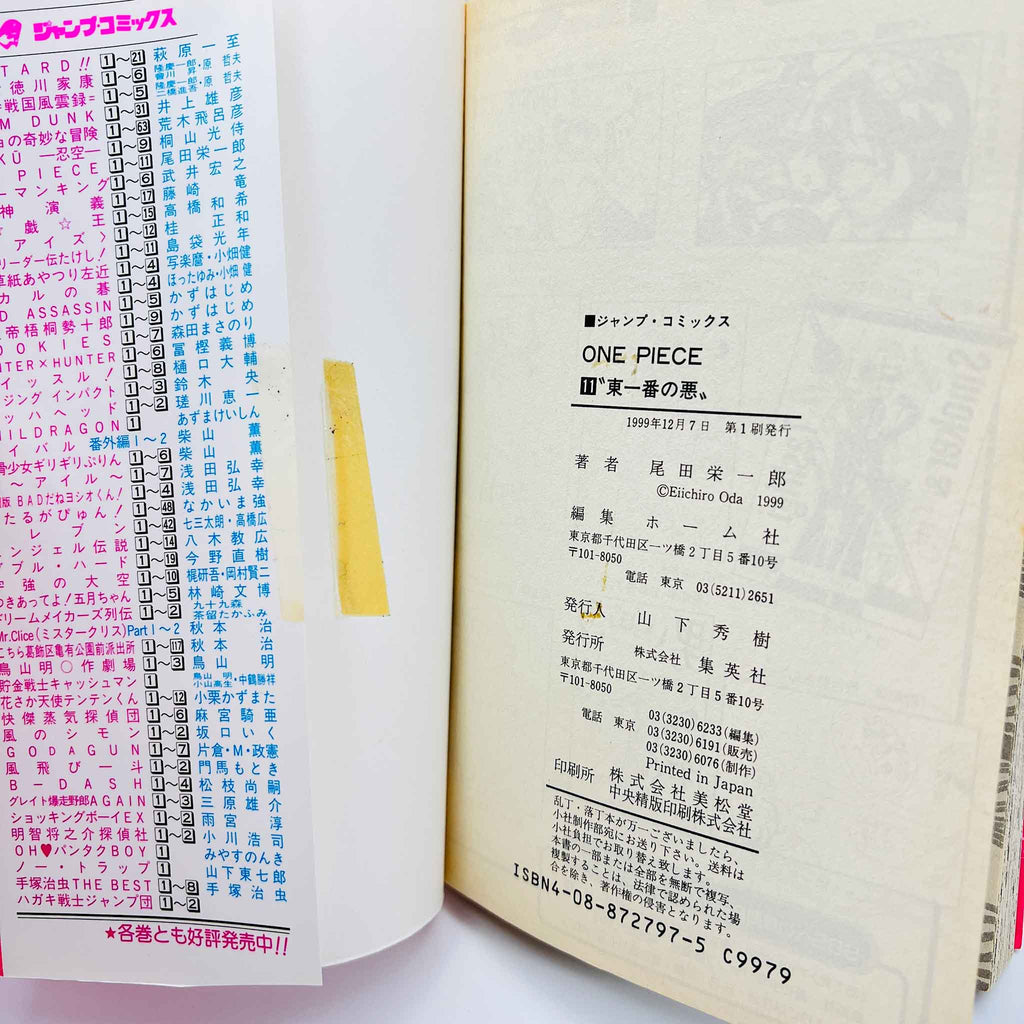 ジャンプ・コミックス
TARD!! 1～21 萩原一至
徳川家康 1～6 隆慶一郎・會川昇・原哲夫
=戦国風雲録= 1～5 隆慶一郎・二橋進吾・原哲夫
M DUNK 1～31 井上雄彦
の奇妙な冒険 1～63 荒木飛呂彦
KŪ ―忍空― 1～9 桐山光侍
PIECE 1～11 尾田栄一郎
ーマンキング 1～6 武井宏之
神演義 1～17 藤崎竜
戯☆王 1～15 高橋和希
アイズ〉 1～12 桂正和
リーダー伝たけし! 1～11 島袋光年
草紙あやつり左近 1～4 写楽麿・小畑健
カルの碁 1～4 ほったゆみ・小畑健
D ASSASSIN 1～5 かずはじめ
帝梧桐勢十郎 1～9 かずはじめ
OOKIES 1～7 森田まさのり
NTER×HUNTER 1～6 冨樫義博
イッスル! 1～8 樋口大輔
ジング インパクト 1～3 鈴木央
ッハヘッド 1～2 瑳川恵一
HILDRAGON 1 あずまけいしん
イバル 番外編1～2 柴山薫
骨少女ギリギリぷりん 1～6 柴山薫
～アイル～ 1～7 浅田弘幸
版 BADだねヨシオくん! 1～4 浅田弘幸
たるがぴゅん! 1～48 なかいま強
レブン 1～42 七三太朗・高橋広
ンジェル伝説 1～14 八木教広
ブル・ハード 1～19 今野直樹
強の大空 1～10 梶研吾・岡村賢二
つきあってよ!五月ちゃん 1～5 林崎文博
ドリームメイカーズ列伝 1～2 九十九森 茶留たかふみ
Mr.Clice(ミスタークリス) Part1～2 秋本治
こちら葛飾区亀有公園前派出所 1～117 秋本治
鳥山明○作劇場 1～3 鳥山明
貯金戦士キャッシュマン 1 鳥山明 小山高生・中鶴勝祥
花さか天使テンテンくん 1～12 小栗かずまた
快傑蒸気探偵団 1～6 麻宮騎亜
風のシモン 1～2 坂口いく
GODAGUN 1～7 片倉・M・政憲
風飛び一斗 1～2 門馬もとき
B-DASH 1～4 松枝尚嗣
グレイト爆走野郎AGAIN 1～3 三原雄介
ショッキングボーイEX 1～2 雨宮淳
明智将之介探偵社 1～2 小川浩司
OH♥バンタクBOY 1 みやすのんき
ノー・トラップ 1 山下東七郎
手塚治虫THE BEST 1～8 手塚治虫
ハガキ戦士ジャンプ団 1～2
★各巻とも好評発売中!!
■ジャンプ・コミックス
ONE PIECE
11〝東一番の悪〟
1999年12月7日 第1刷発行
著者 尾田栄一郎
©Eiichiro Oda 1999
編集 ホーム社
東京都千代田区一ツ橋2丁目5番10号
〒101-8050
電話 東京 03(5211)2651
発行人 山下秀樹
発行所 株式会社 集英社
東京都千代田区一ツ橋2丁目5番10号
〒101-8050
03(3230)6233(編集)
電話 東京 03(3230)6191(販売)
03(3230)6076(制作)
Printed in Japan
印刷所 株式会社美松堂
中央精版印刷株式会社
乱丁・落丁本が万一ございましたら、
小社制作部宛にお送り下さい。送料は
小社負担でお取り替え致します。
本書の一部または全部を無断で複写、
複製することは、法律で認められた場
合を除き、著作権の侵害となります。
ISBN4-08-872797-5 C9979